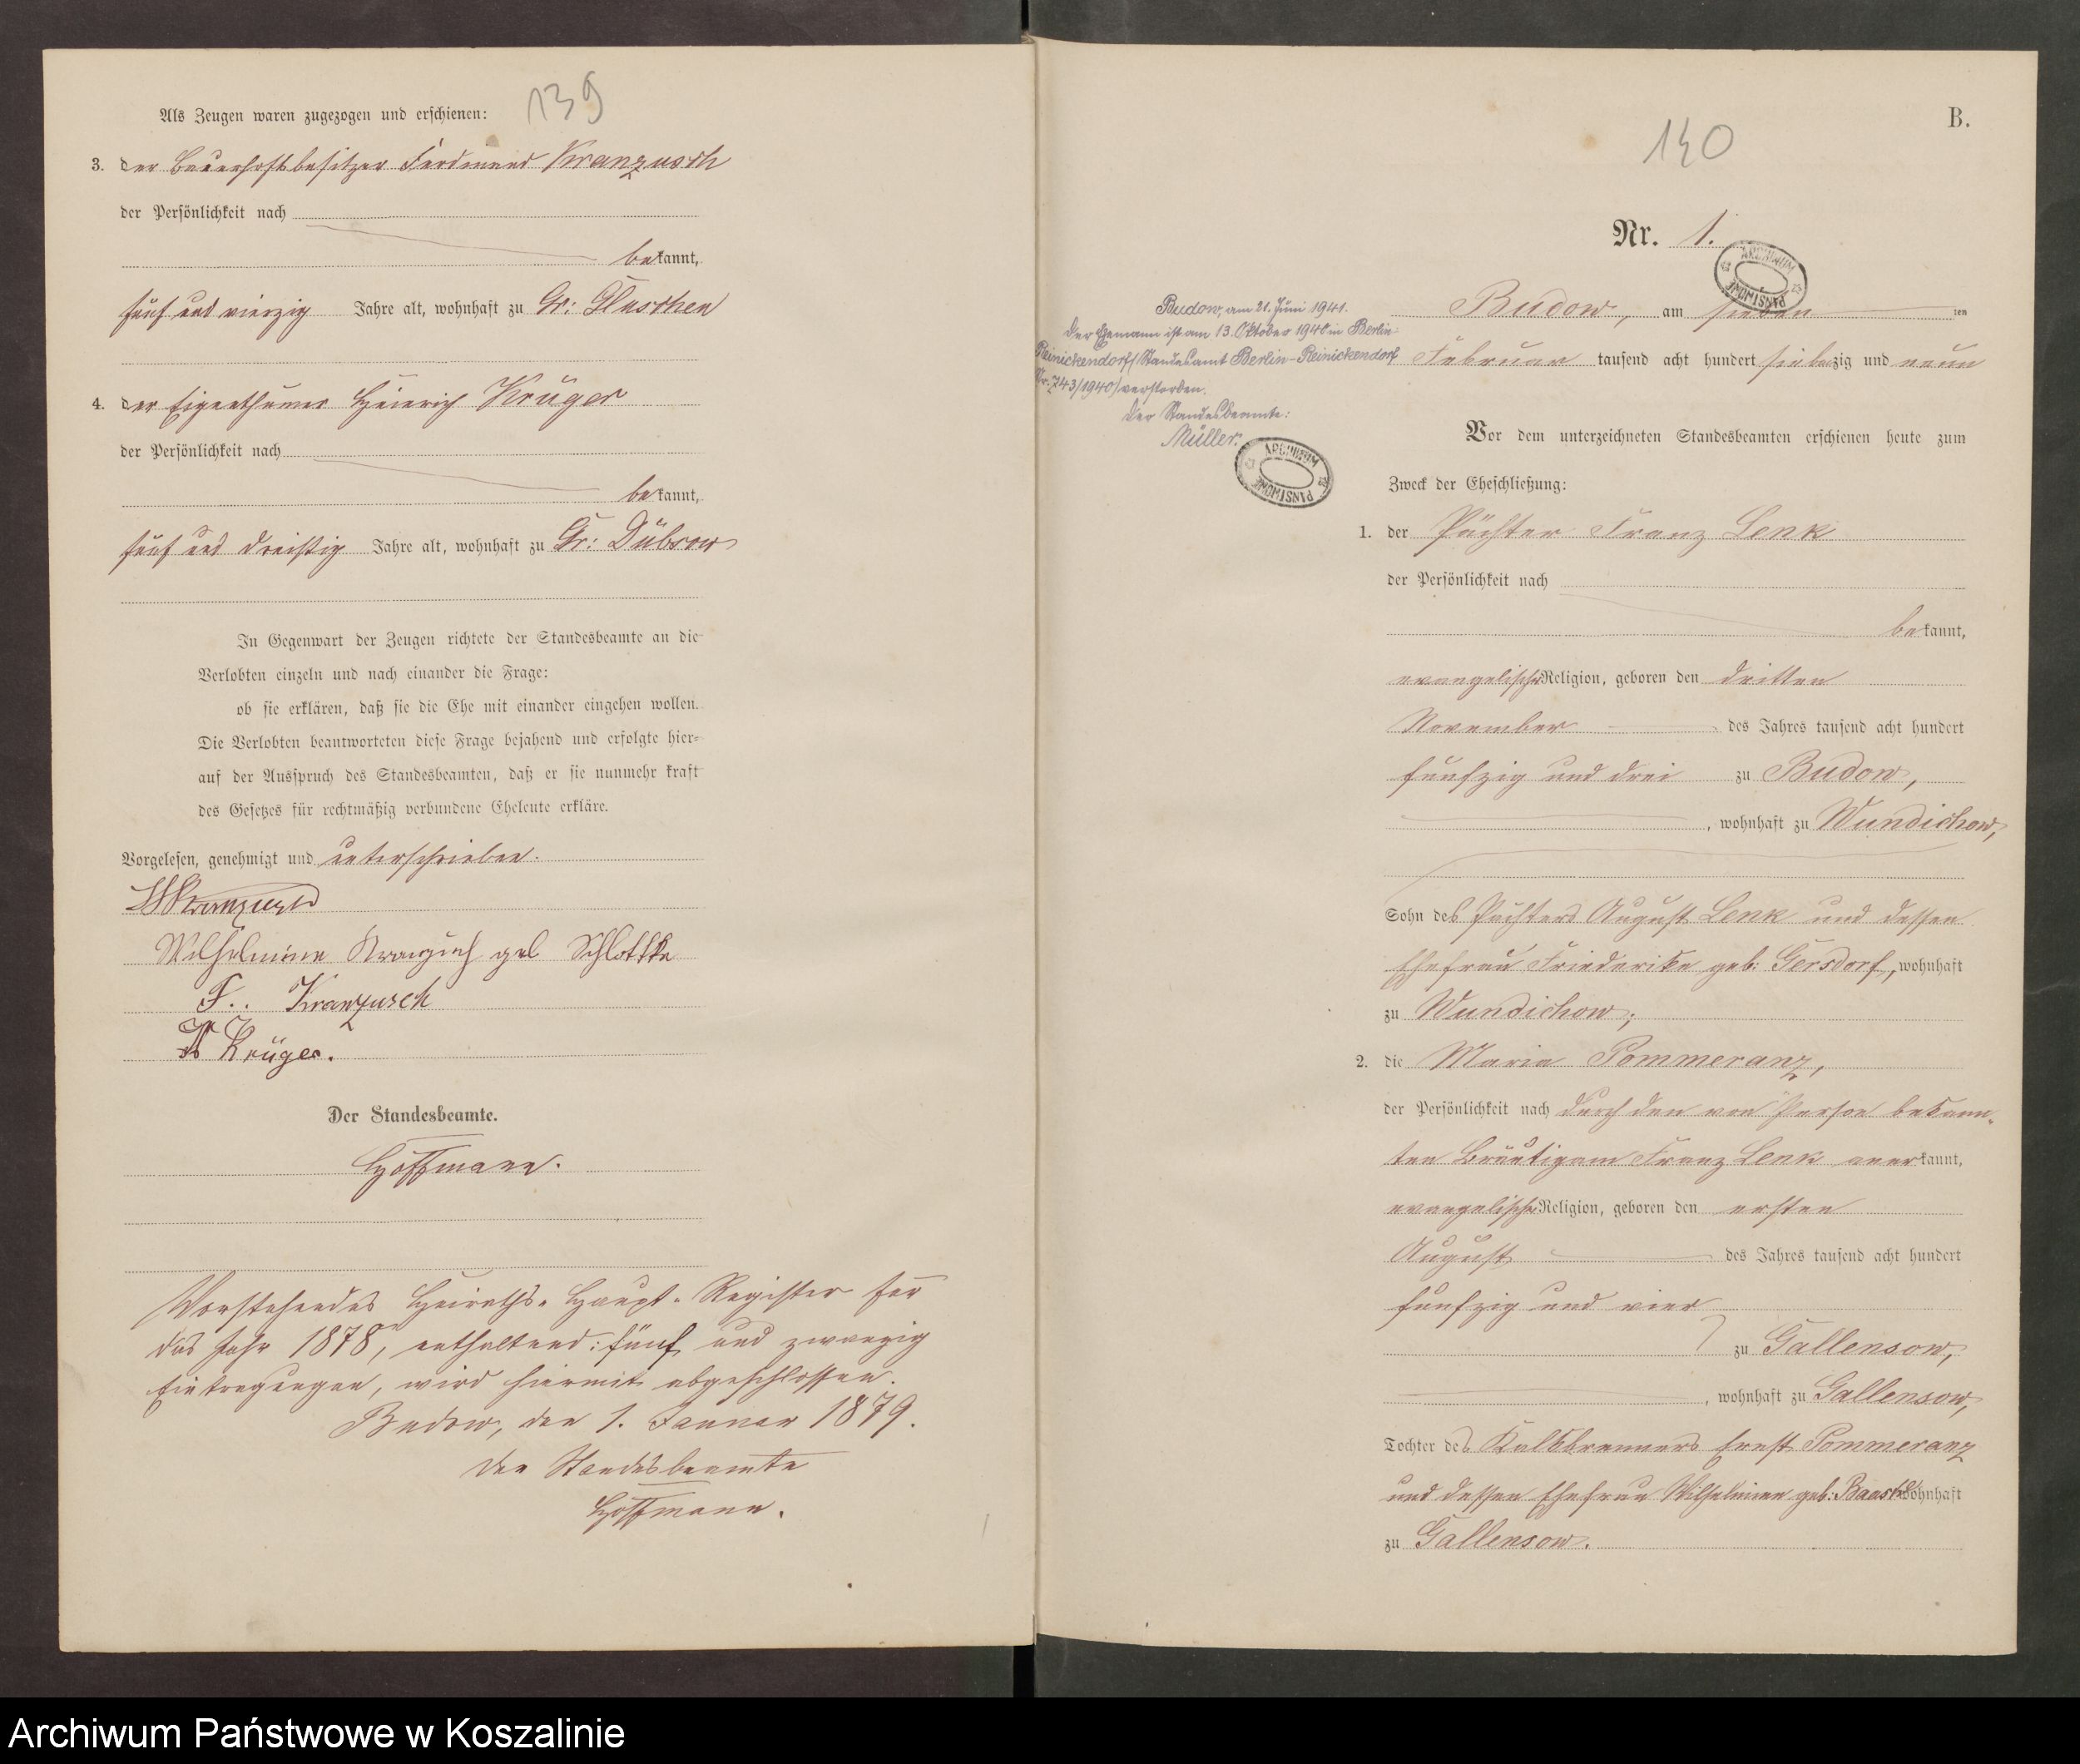 139
Als Zeugen waren zugezogen und erschienen:
3. der Bauerhofsbesitzer Ferdinand Kranzusch
der Persönlichkeit nach
bekannt,
fünf und vierzig Jahre alt, wohnhaft zu Gr: Gluschen
4. der Eigenthümer Heinrich Krüger
der Persönlichkeit nach
bekannt,
fünf und dreißig Jahre alt, wohnhaft zu Gr: Dübsow
In Gegenwart der Zeugen richtete der Standesbeamte an die
Verlobten einzeln und nach einander die Frage:
ob sie erklären, daß sie die Ehe mit einander eingehen wollen.
Die Verlobten beantworteten diese Frage bejahend und erfolgte hier-
auf der Ausspruch des Standesbeamten, daß er sie nunmehr kraft
des Gesetzes für rechtmäßig verbundene Eheleute erkläre.
Vorgelesen, genehmigt und unterschrieben.
Wilhelmine Kranzusch geb Schlottke
F.. Kranzusch
H Krüger.
Der Standesbeamte.
Hoffmann.
Vorstehendes Heiraths-Haupt-Register für
das Jahr 1878, enthaltend: fünf und zwanzig
Eintragungen, wird hiermit abgeschlossen.
Budow, den 1. Januar 1879.
Der Standesbeamte
Hoffmann.
B.
140
Nr. 1.
ARCHIWUM PAŃSTWOWE
Budow, am sieben ten
Februar tausend acht hundert siebenzig und neun
Budow, am 21. Juni 1941.
Der Ehemann ist am 13. Oktober 1940 in Berlin-
Reinickendorf (Standesamt Berlin-Reinickendorf
Nr. 743/1940) verstorben.
Der Standesbeamte:
Müller.
ARCHIWUM PAŃSTWOWE
Vor dem unterzeichneten Standesbeamten erschienen heute zum
Zweck der Eheschließung:
1. der Pächter Franz Lenk
der Persönlichkeit nach
bekannt,
evangelischer Religion, geboren den dritten
November des Jahres tausend acht hundert
fünfzig und drei zu Budow,
, wohnhaft zu Wundichow,
Sohn des Pächters August Lenk und dessen
Ehefrau Friederike geb: Gersdorf, wohnhaft
zu Wundichow;
2. die Maria Pommeranz,
der Persönlichkeit nach durch den von Person bekann-
ten Bräutigam Franz Lenk anerkannt,
evangelischer Religion, geboren den ersten
August des Jahres tausend acht hundert
fünfzig und vier
zu Gallensow,
, wohnhaft zu Gallensow,
Tochter des Kalkbrenners Ernst Pommeranz
und dessen Ehefrau Wilhelmine geb: wohnhaft
zu Gallensow.
Archiwum Państwowe w Koszalinie